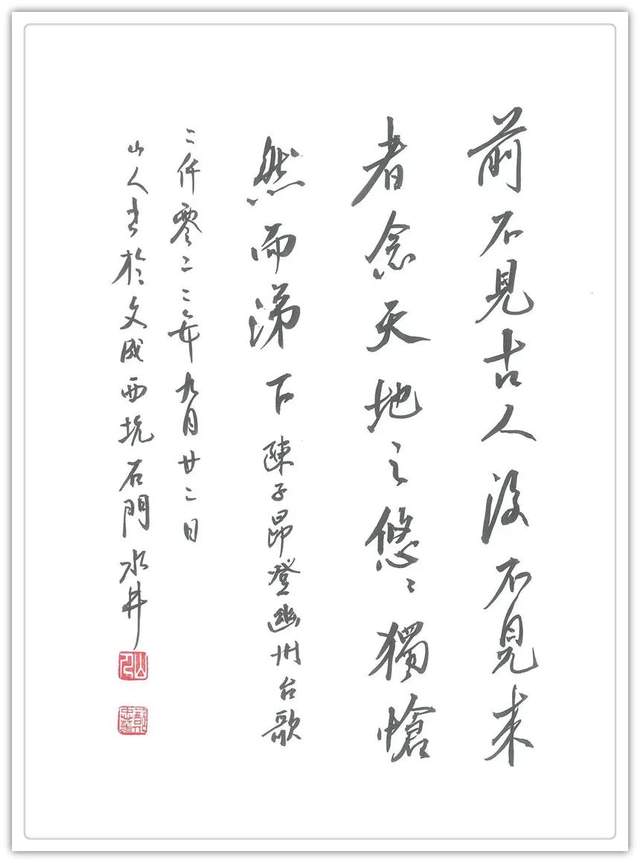 前不見古人後不見来
者念天地之悠〻獨愴
然而涕下陳子昂登幽州台歌
二仟零二二年九月廿二日
山人书於文成西坑石門水井
山人